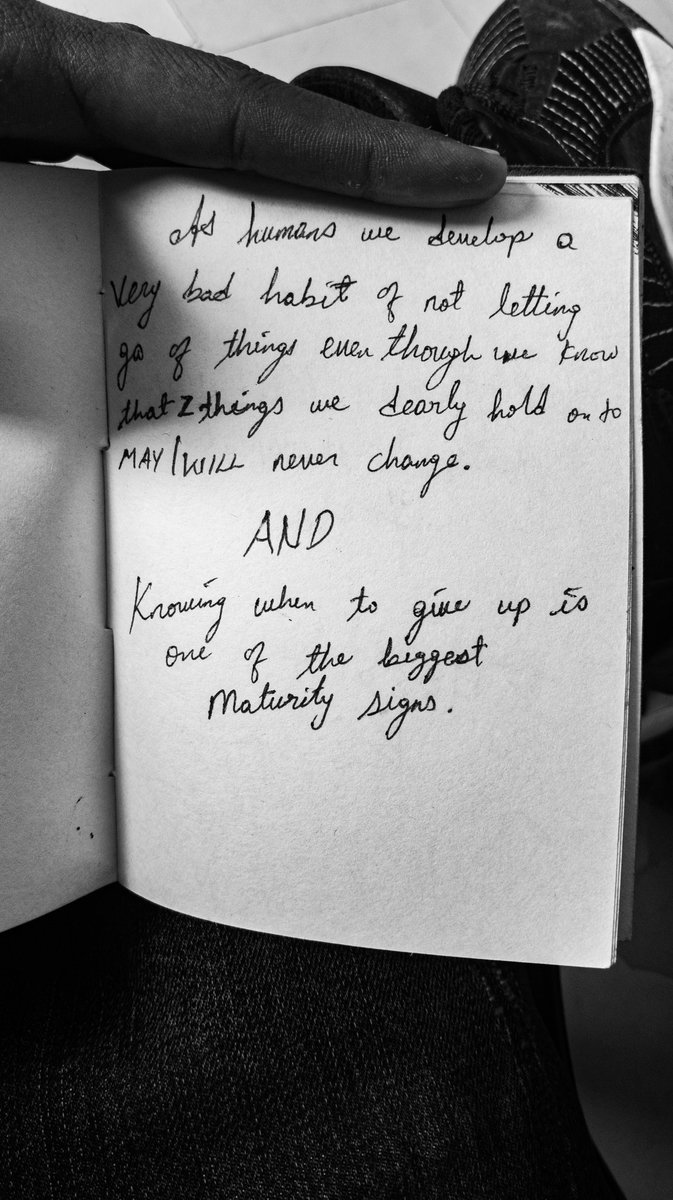 As humans we develop a
very bad habit of not letting
go of things even though we know
that things we dearly hold on to
MAY/WILL never change.
AND
Knowing when to give up is
one of the biggest
Maturity signs.